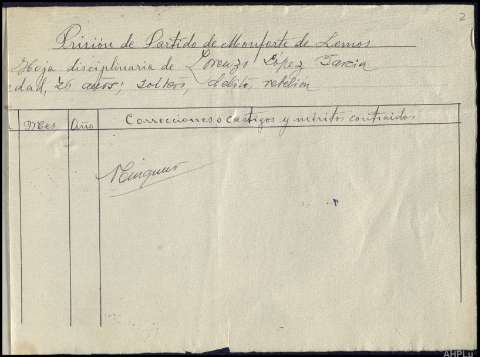 2
Prisión de Partido de Monforte de Lemos
Hoja disciplinaria de Lorenzo López García
edad, 26 años; soltero, delito, rebelión
Mes Año Correcciones o castigos y méritos contraidos
Ninguno
AHPLu